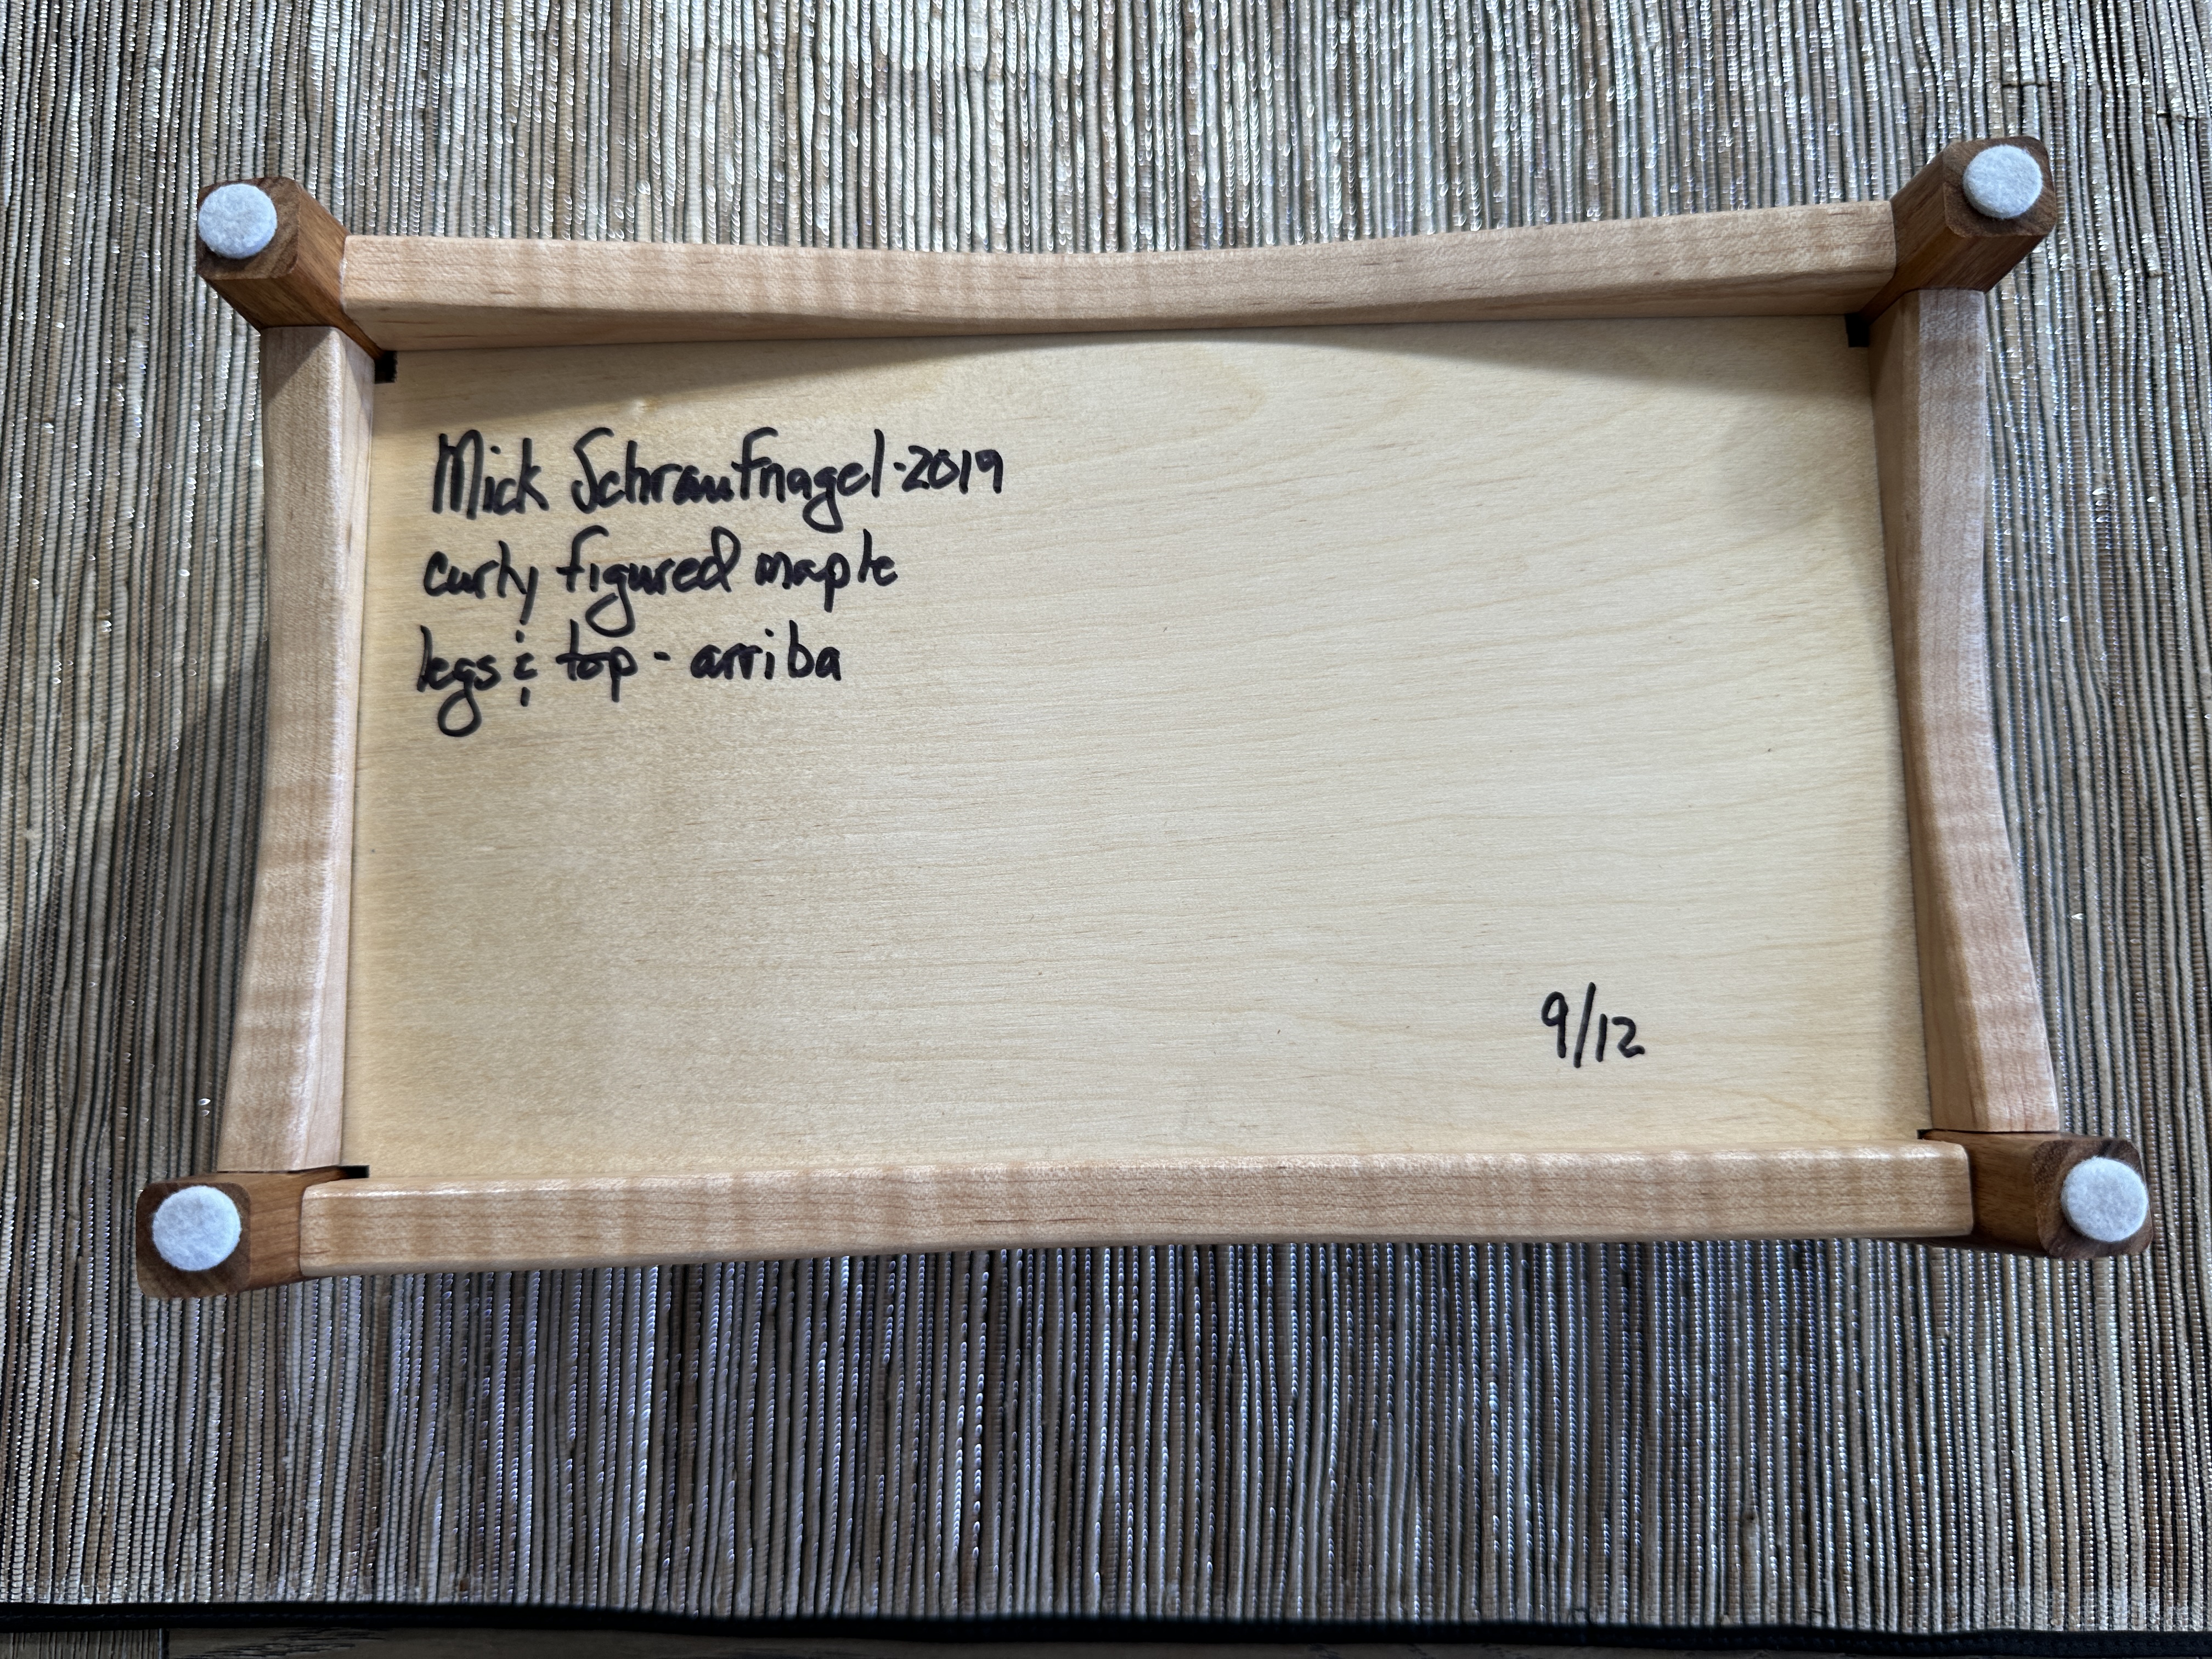 Mick Schraufnagel-2019
curly figured maple
legs & top - arriba
9/12